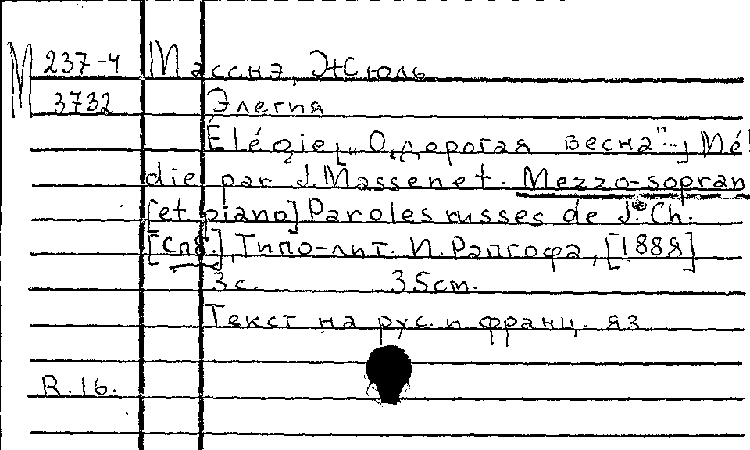 М 237-4 Массна, Жюль
3732 Элегия
Élégie [„О, дорогая весна"-] Mé
die par J. Massenet. Mezzo-sopran
[et piano] Paroles russes de J. Ch.
[Спб.], Типо-лит. И. Рапгофа, [1888]
3 с. 35cm.
Текст на рус. и франц. яз
R. 16.